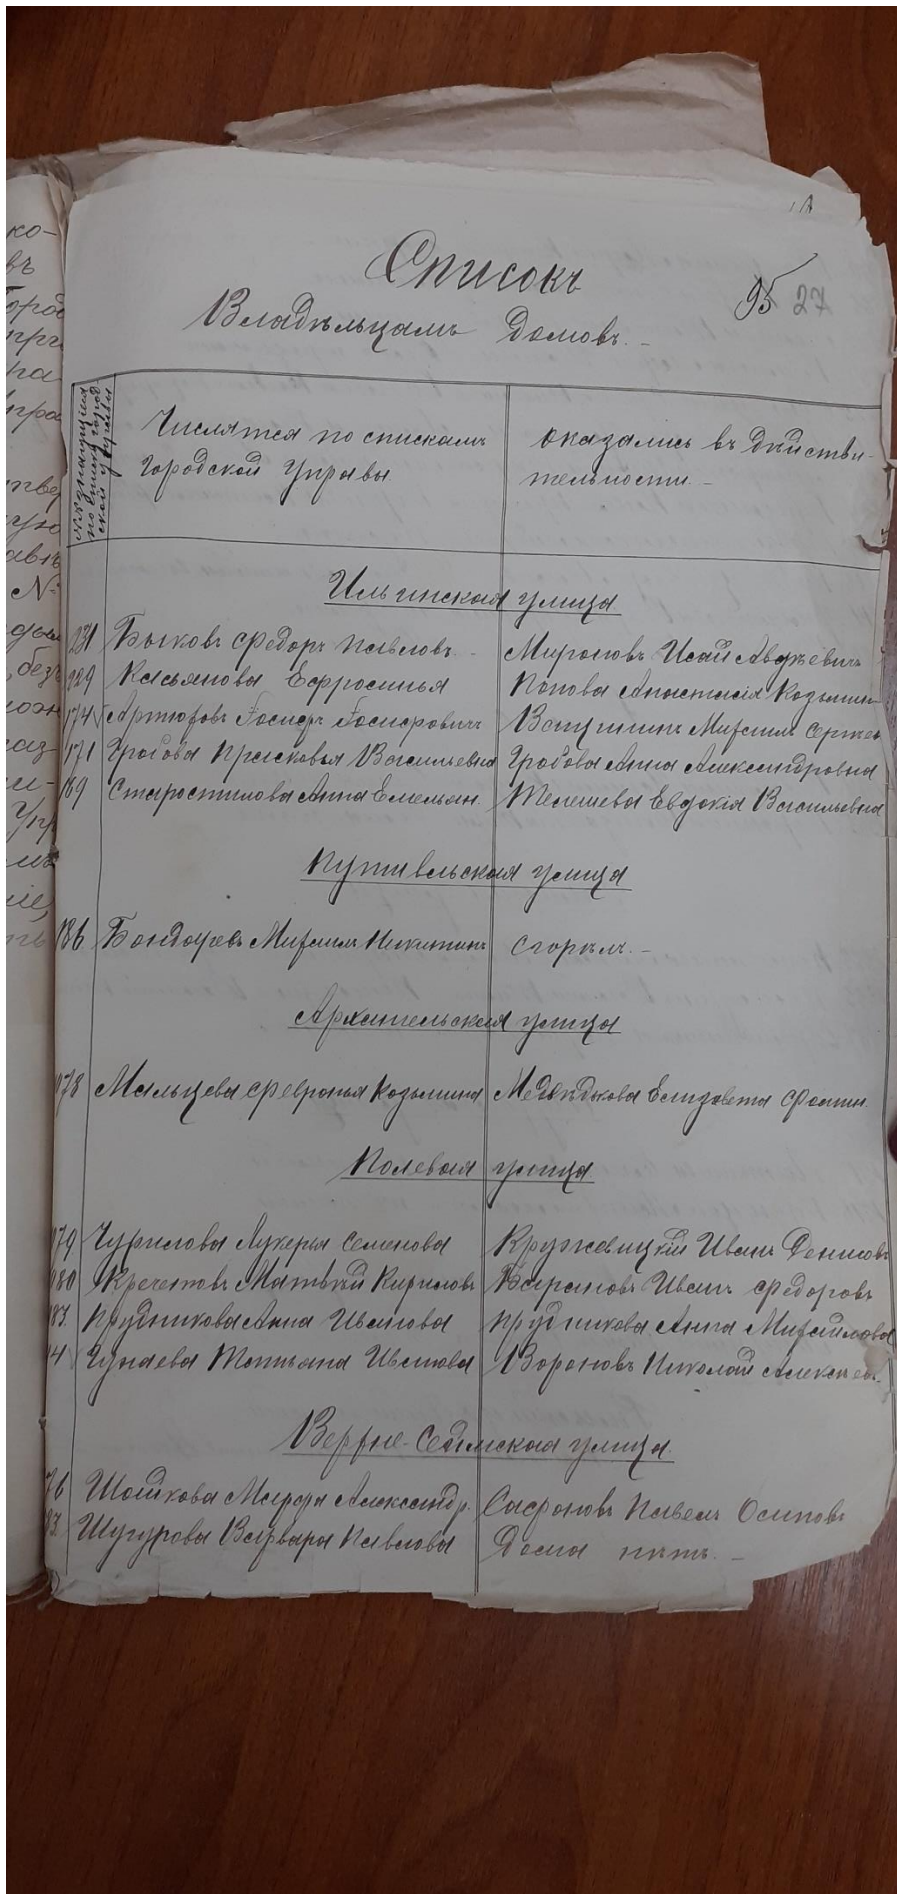 Списокъ
95 27
Владѣльцамъ домовъ.
№№ значущіеся по списку городской управы
Числятся по спискамъ Городской Управы
оказались въ дѣйстви-тельности.
Ильинская улица
231 Быковъ Федоръ Павловъ Мироновъ Исай Авдѣевичъ
229 Касьянова Ефросинья Попова Анастасія Козьмин
174 Артюховъ Іосифъ Іосифовичъ Мирхаилъ Сергѣев
171 Гробова Прасковья Васильевна Гробова Анна Александровна
169 Старостилова Анна Емельян. Телешева Евдокія Васильевна
Путивльская улица
186 Бондаревъ Михаилъ Никитинъ Сгорѣлъ.
Архангельская улица
178 Мальцева Февронья Козьмина Медвѣдкова Елизовета Фомин.
Полевая улица
79 Чурилова Лукерья Семенова Кружевицкій Иванъ Денисовъ
80 Кречетовъ Матвѣй Кириловъ Барановъ Иванъ Федоровъ
83. Прудникова Анна Иванова Прудникова Анна Михайлова
4 Чунаева Татьана Иванова Вороновъ Николай Алексѣев.
Верхне-Сеймская улица
76 Шашкова Марфа Александр. Сафоновъ Павелъ Осиповъ
93. Шугурова Варвара Павлова Дома нѣтъ.